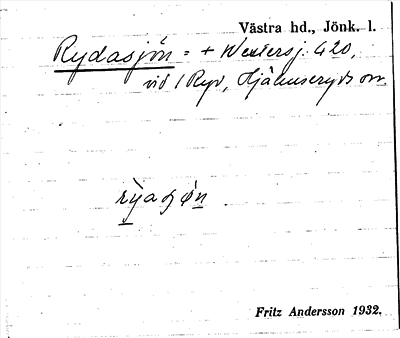 Västra hd., Jönk. l.
Rydasjön = + Wentersj. 420,
vid 1 Ryd, Hjälmseryds sn.
rỳaʃøn
Fritz Andersson 1932.